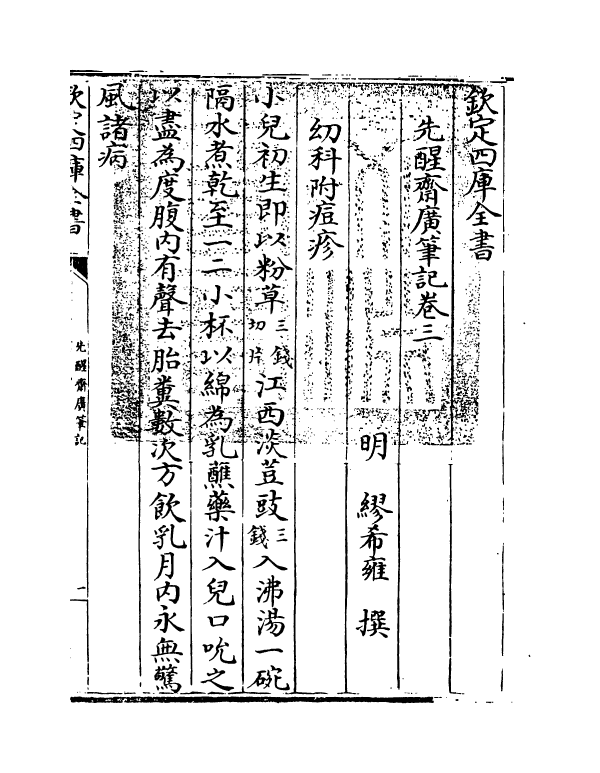 欽定四庫全書
先醒齋廣筆記卷三
明 繆希雍 撰
幼科附痘疹
小兒初生即以粉草三錢切片江西淡荳豉三錢入沸湯一碗
隔水煮乾至一二小杯以綿為乳蘸藥汁入兒口吮之
以盡為度腹内有聲去胎糞數次方飲乳月内永無驚
風諸病
欽定四庫全書
先醒齋廣筆記
一